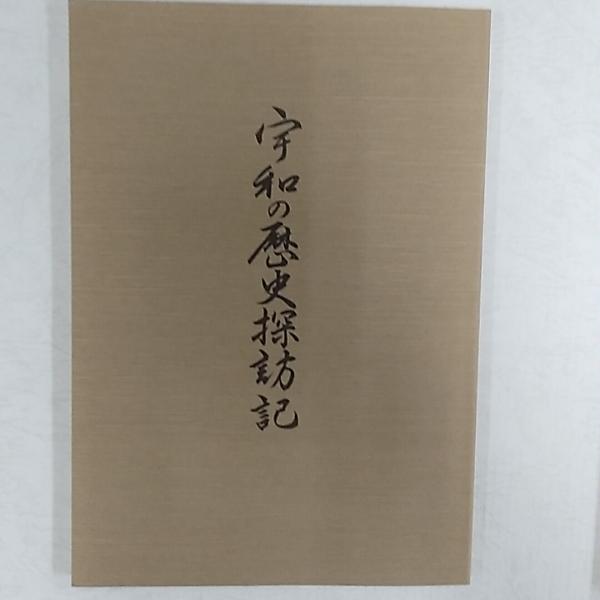 宇和の歴史探訪記